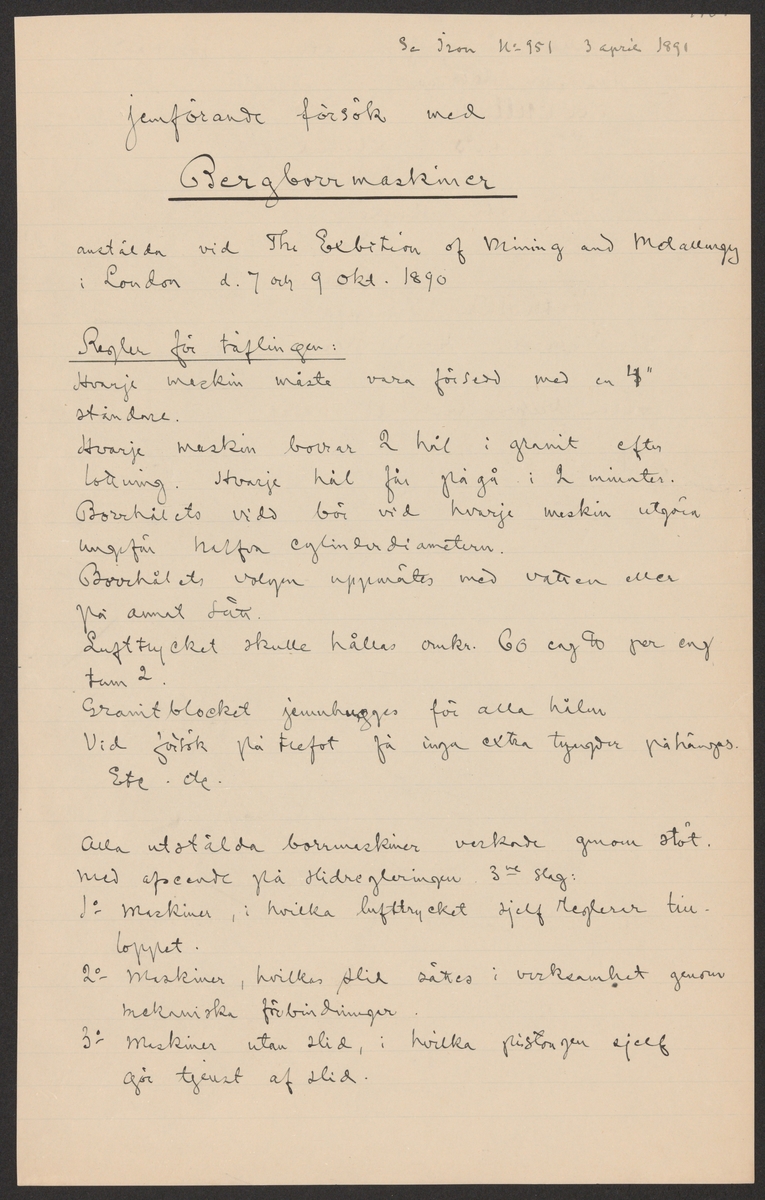 Se Iron No 951 3 april 1891
jemförande försök med
Bergborrmaskiner
anstälda vid The Exbition of Mining and Metallurgy
i London d. 7 och 9 Okt. 1890
Regler för täflingen:
Hvarje maskin måste vara försedd med en 4"
ståndare.
Hvarje maskin borrar 2 hål i granit efter
lottning. Hvarje hål får pågå i 2 minuter.
Borrhålets vidd bör vid hvarje maskin utgöra
ungefär halfva cylinderdiametern.
Borrhålets volym uppmätes med vatten eller
på annat sätt.
Lufttrycket skulle hållas omkr. 60 eng ℔ per eng
tum 2.
Granitblocket jemnhugges för alla hålen
Vid försök på trefot få inga extra tyngder påhängas.
Etc. etc.
Alla utstälda borrmaskiner verkade genom stöt.
Med afseende på slidregleringen 3ne slag:
1o Maskiner, i hvilka lufttrycket sjelf reglerar till-
loppet.
2o Maskiner, hvilkas slid sättes i verksamhet genom
mekaniska förbindningar.
3o Maskiner utan slid, i hvilka pistongen sjelf
gör tjenst af slid.